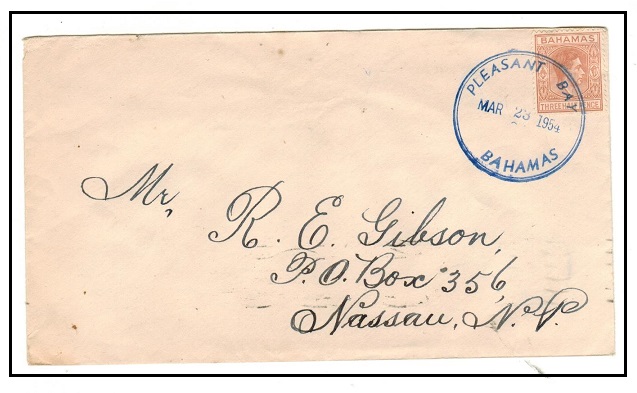 BAHAMAS
THREE HALF PENCE
PLEASANT BAY
MAR 23 1954
BAHAMAS
Mr,
R. E. Gibson,
P.O. Box 356,
Nassau, N.P.